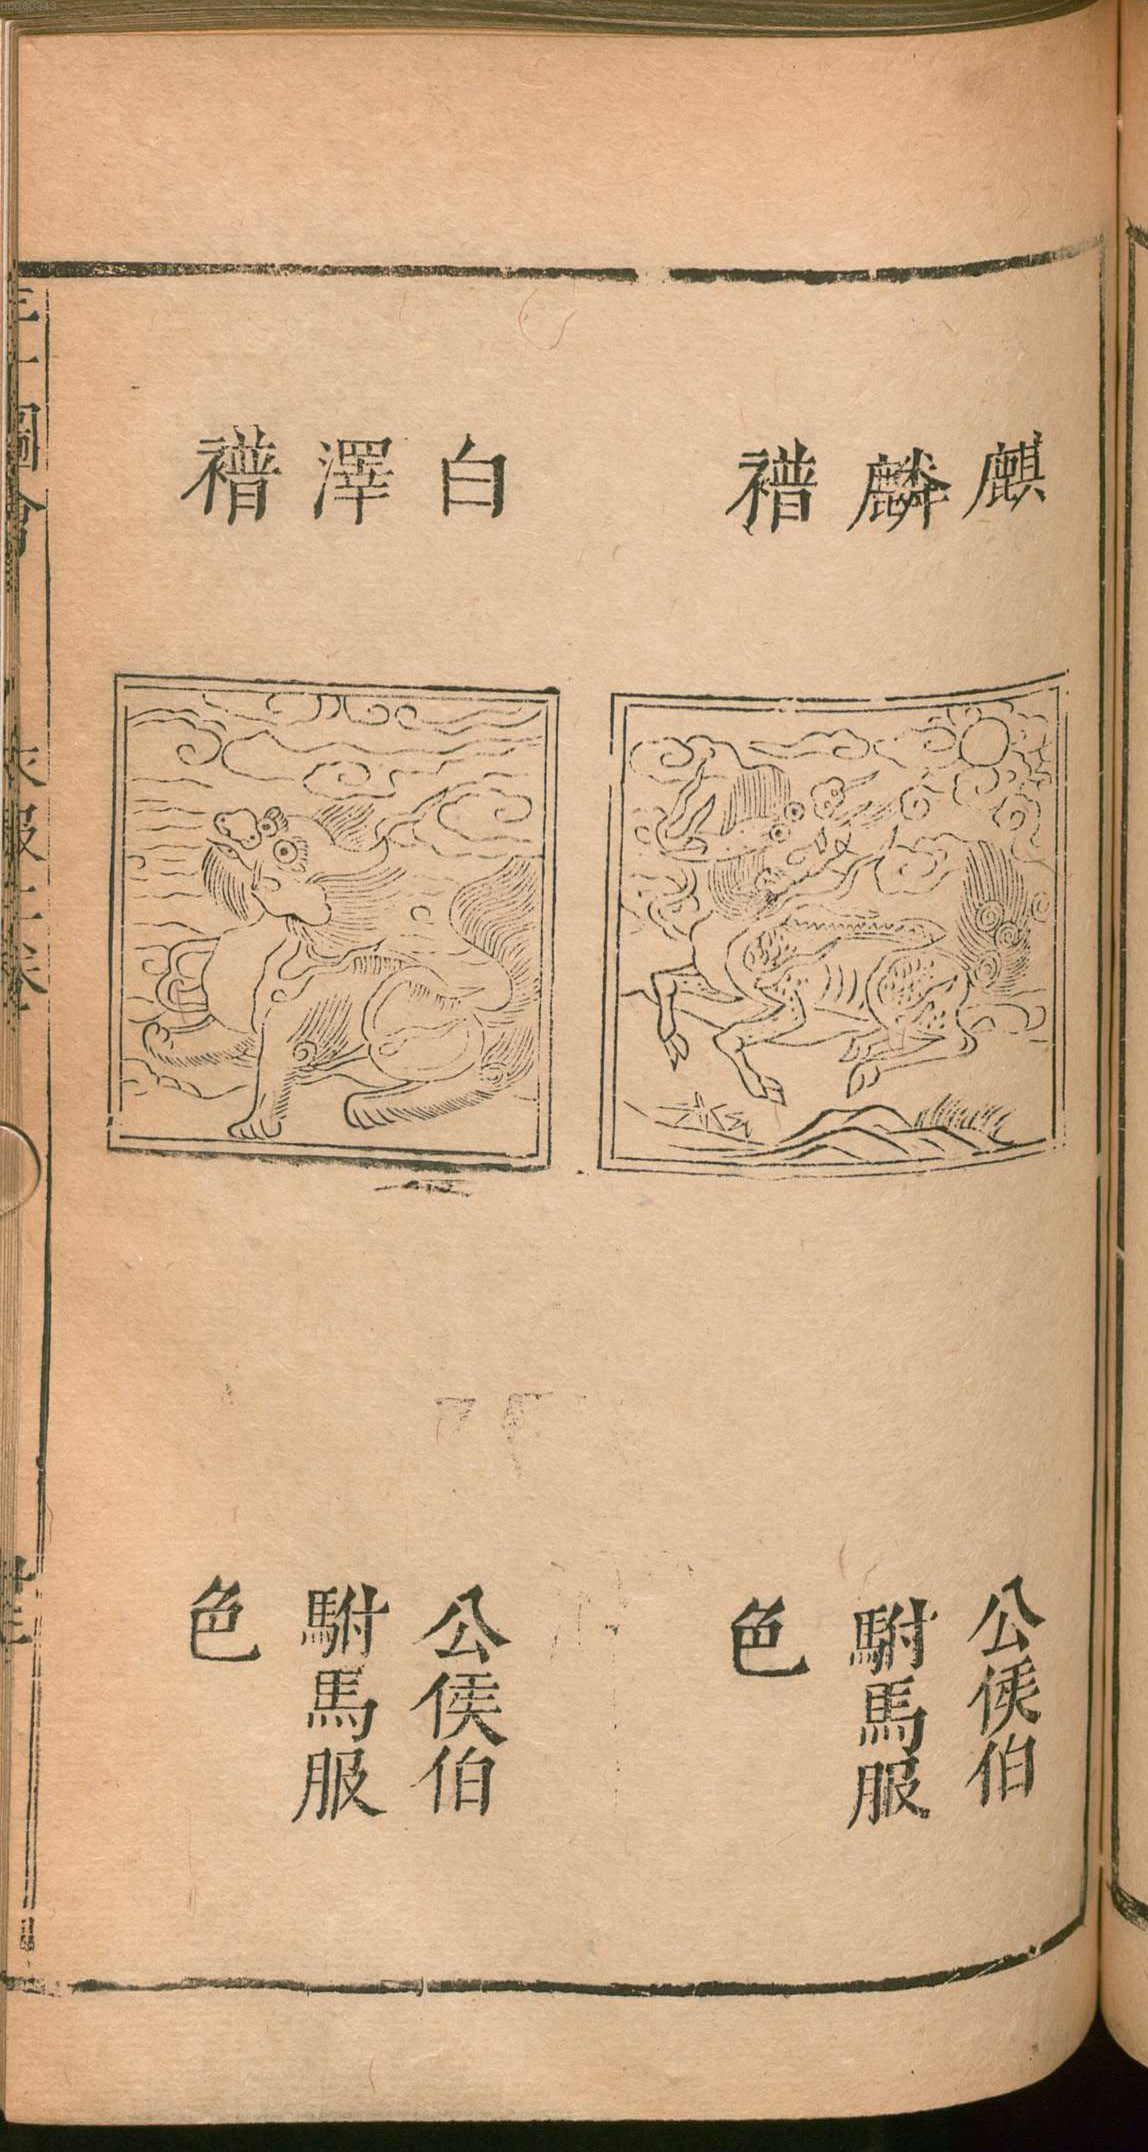 麒麟䙊
公侯伯
駙馬服
色
白澤䙊
公侯伯
駙馬服
色
三才圖會
衣服二卷
00060343